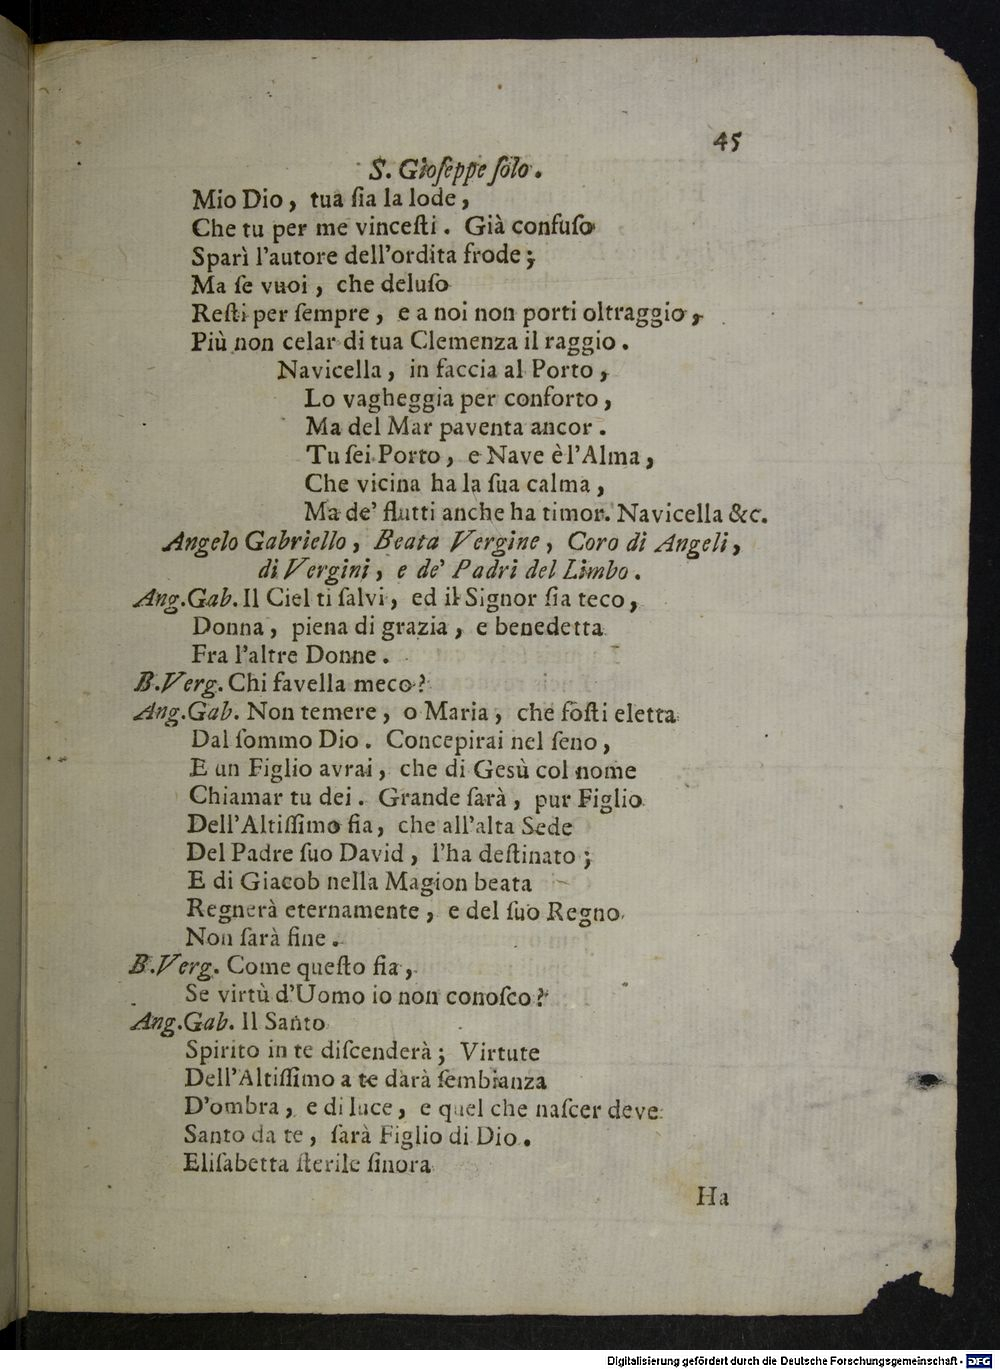 45
S. Gioſeppe ſolo.
Mio Dio, tua ſia la lode,
Che tu per me vinceſti. Già confuſo
Sparì l'autore dell'ordita frode;
Ma ſe vuoi, che deluſo
Reſti per ſempre, e a noi non porti oltraggio,
Più non celar di tua Clemenza il raggio.
Navicella, in faccia al Porto,
Lo vagheggia per conforto,
Ma del Mar paventa ancor.
Tu ſei Porto, e Nave è l'Alma,
Che vicina ha la ſua calma,
Ma de' flutti anche ha timor. Navicella &c.
Angelo Gabriello, Beata Vergine, Coro di Angeli,
di Vergini, e de' Padri del Limbo.
Ang.Gab. Il Ciel ti ſalvi, ed il Signor ſia teco,
Donna, piena di grazia, e benedetta
Fra l'altre Donne.
B.Verg. Chi favella meco?
Ang.Gab. Non temere, o Maria, che foſti eletta
Dal ſommo Dio. Concepirai nel ſeno,
E un Figlio avrai, che di Gesù col nome
Chiamar tu dei. Grande ſarà, pur Figlio
Dell'Altiſſimo fia, che all'alta Sede
Del Padre ſuo David, l'ha deſtinato;
E di Giacob nella Magion beata
Regnerà eternamente, e del ſuo Regno
Non ſarà fine.
B.Verg. Come queſto fia,
Se virtù d'Uomo io non conoſco?
Ang.Gab. Il Santo
Spirito in te diſcenderà; Virtute
Dell'Altiſſimo a te darà ſembianza
D'ombra, e di luce, e quel che naſcer deve
Santo da te, ſarà Figlio di Dio.
Eliſabetta ſterile ſinora
Ha
Digitalisierung gefördert durch die Deutsche Forschungsgemeinschaft - DFG